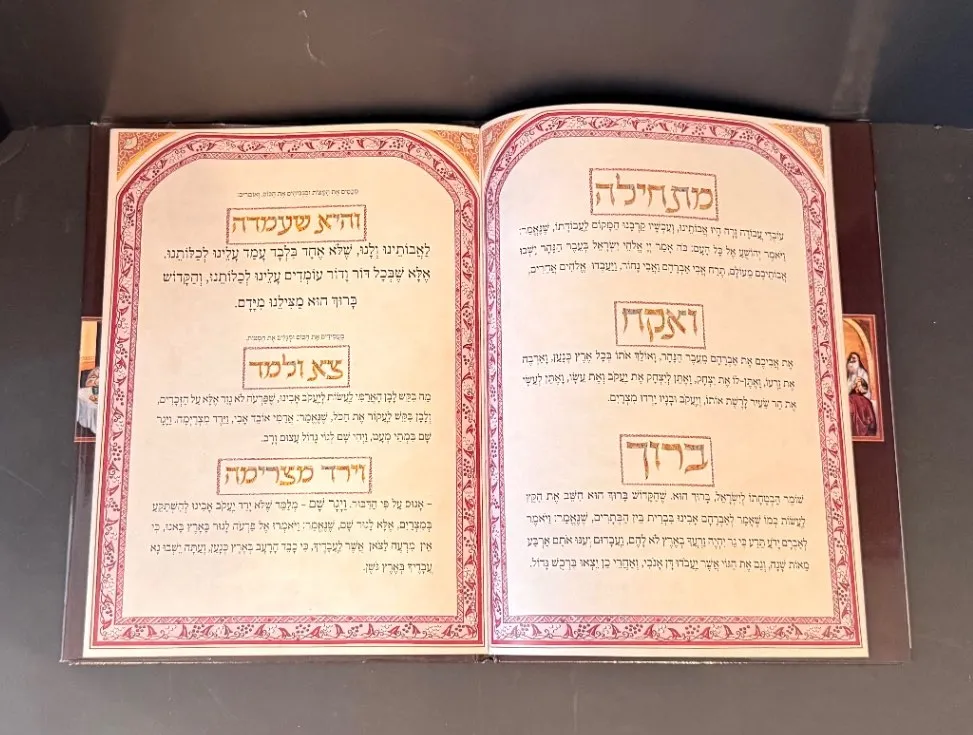 מתחילה
עוֹבְדֵי עֲבוֹדָה זָרָה הָיוּ אֲבוֹתֵינוּ, וְעַכְשָׁיו קֵרְבָנוּ הַמָּקוֹם לַעֲבוֹדָתוֹ, שֶׁנֶּאֱמַר:
וַיֹּאמֶר יְהוֹשֻׁעַ אֶל כָּל הָעָם: כֹּה אָמַר יְיָ אֱלֹהֵי יִשְׂרָאֵל בְּעֵבֶר הַנָּהָר יָשְׁבוּ
אֲבוֹתֵיכֶם מֵעוֹלָם, תֶּרַח אֲבִי אַבְרָהָם וַאֲבִי נָחוֹר, וַיַּעַבְדוּ אֱלֹהִים אֲחֵרִים.
ואקח
אֶת אֲבִיכֶם אֶת אַבְרָהָם מֵעֵבֶר הַנָּהָר, וָאוֹלֵךְ אֹתוֹ בְּכָל אֶרֶץ כְּנָעַן, וָאַרְבֶּה
אֶת זַרְעוֹ, וָאֶתֶּן-לוֹ אֶת יִצְחָק, וָאֶתֵּן לְיִצְחָק אֶת יַעֲקֹב וְאֶת עֵשָׂו, וָאֶתֵּן לְעֵשָׂו
אֶת הַר שֵׂעִיר לָרֶשֶׁת אוֹתוֹ, וְיַעֲקֹב וּבָנָיו יָרְדוּ מִצְרָיִם.
ברוך
שׁוֹמֵר הַבְטָחָתוֹ לְיִשְׂרָאֵל, בָּרוּךְ הוּא. שֶׁהַקָּדוֹשׁ בָּרוּךְ הוּא חִשַּׁב אֶת הַקֵּץ
לַעֲשׂוֹת כְּמוֹ שֶׁאָמַר לְאַבְרָהָם אָבִינוּ בִּבְרִית בֵּין הַבְּתָרִים, שֶׁנֶּאֱמַר: וַיֹּאמֶר
לְאַבְרָם יָדֹעַ תֵּדַע כִּי גֵר יִהְיֶה זַרְעֲךָ בְּאֶרֶץ לֹא לָהֶם, וַעֲבָדוּם וְעִנּוּ אֹתָם אַרְבַּע
מֵאוֹת שָׁנָה, וְגַם אֶת הַגּוֹי אֲשֶׁר יַעֲבֹדוּ דָּן אָנֹכִי, וְאַחֲרֵי כֵן יֵצְאוּ בִּרְכֻשׁ גָּדוֹל.
מְכַסִּים אֶת הַמַּצּוֹת וּמַגְבִּיהִים אֶת הַכּוֹס, וְאוֹמְרִים:
והיא שעמדה
לַאֲבוֹתֵינוּ וְלָנוּ, שֶׁלֹּא אֶחָד בִּלְבָד עָמַד עָלֵינוּ לְכַלּוֹתֵנוּ.
אֶלָּא שֶׁבְּכָל דּוֹר וָדוֹר עוֹמְדִים עָלֵינוּ לְכַלּוֹתֵנוּ, וְהַקָּדוֹשׁ
בָּרוּךְ הוּא מַצִּילֵנוּ מִיָּדָם.
מַעֲמִידִים אֶת הַכּוֹס וּמְגַלִּים אֶת הַמַּצּוֹת.
צא ולמד
מַה בִּקֵּשׁ לָבָן הָאֲרַמִּי לַעֲשׂוֹת לְיַעֲקֹב אָבִינוּ, שֶׁפַּרְעֹה לֹא גָזַר אֶלָּא עַל הַזְּכָרִים,
וְלָבָן בִּקֵּשׁ לַעֲקוֹר אֶת הַכֹּל, שֶׁנֶּאֱמַר: אֲרַמִּי אוֹבֵד אָבִי, וַיֵּרֶד מִצְרַיְמָה. וַיָּגָר
שָׁם בִּמְתֵי מְעָט, וַיְהִי שָׁם לְגוֹי גָּדוֹל עָצוּם וָרָב.
וירד מצרימה
- אָנוּס עַל פִּי הַדִּבּוּר. וַיָּגָר שָׁם - מְלַמֵּד שֶׁלֹּא יָרַד יַעֲקֹב אָבִינוּ לְהִשְׁתַּקֵּעַ
בְּמִצְרַיִם, אֶלָּא לָגוּר שָׁם, שֶׁנֶּאֱמַר: וַיֹּאמְרוּ אֶל פַּרְעֹה לָגוּר בָּאָרֶץ בָּאנוּ, כִּי
אֵין מִרְעֶה לַצֹּאן אֲשֶׁר לַעֲבָדֶיךָ, כִּי כָבֵד הָרָעָב בְּאֶרֶץ כְּנָעַן, וְעַתָּה יֵשְׁבוּ נָא
עֲבָדֶיךָ בְּאֶרֶץ גֹּשֶׁן.